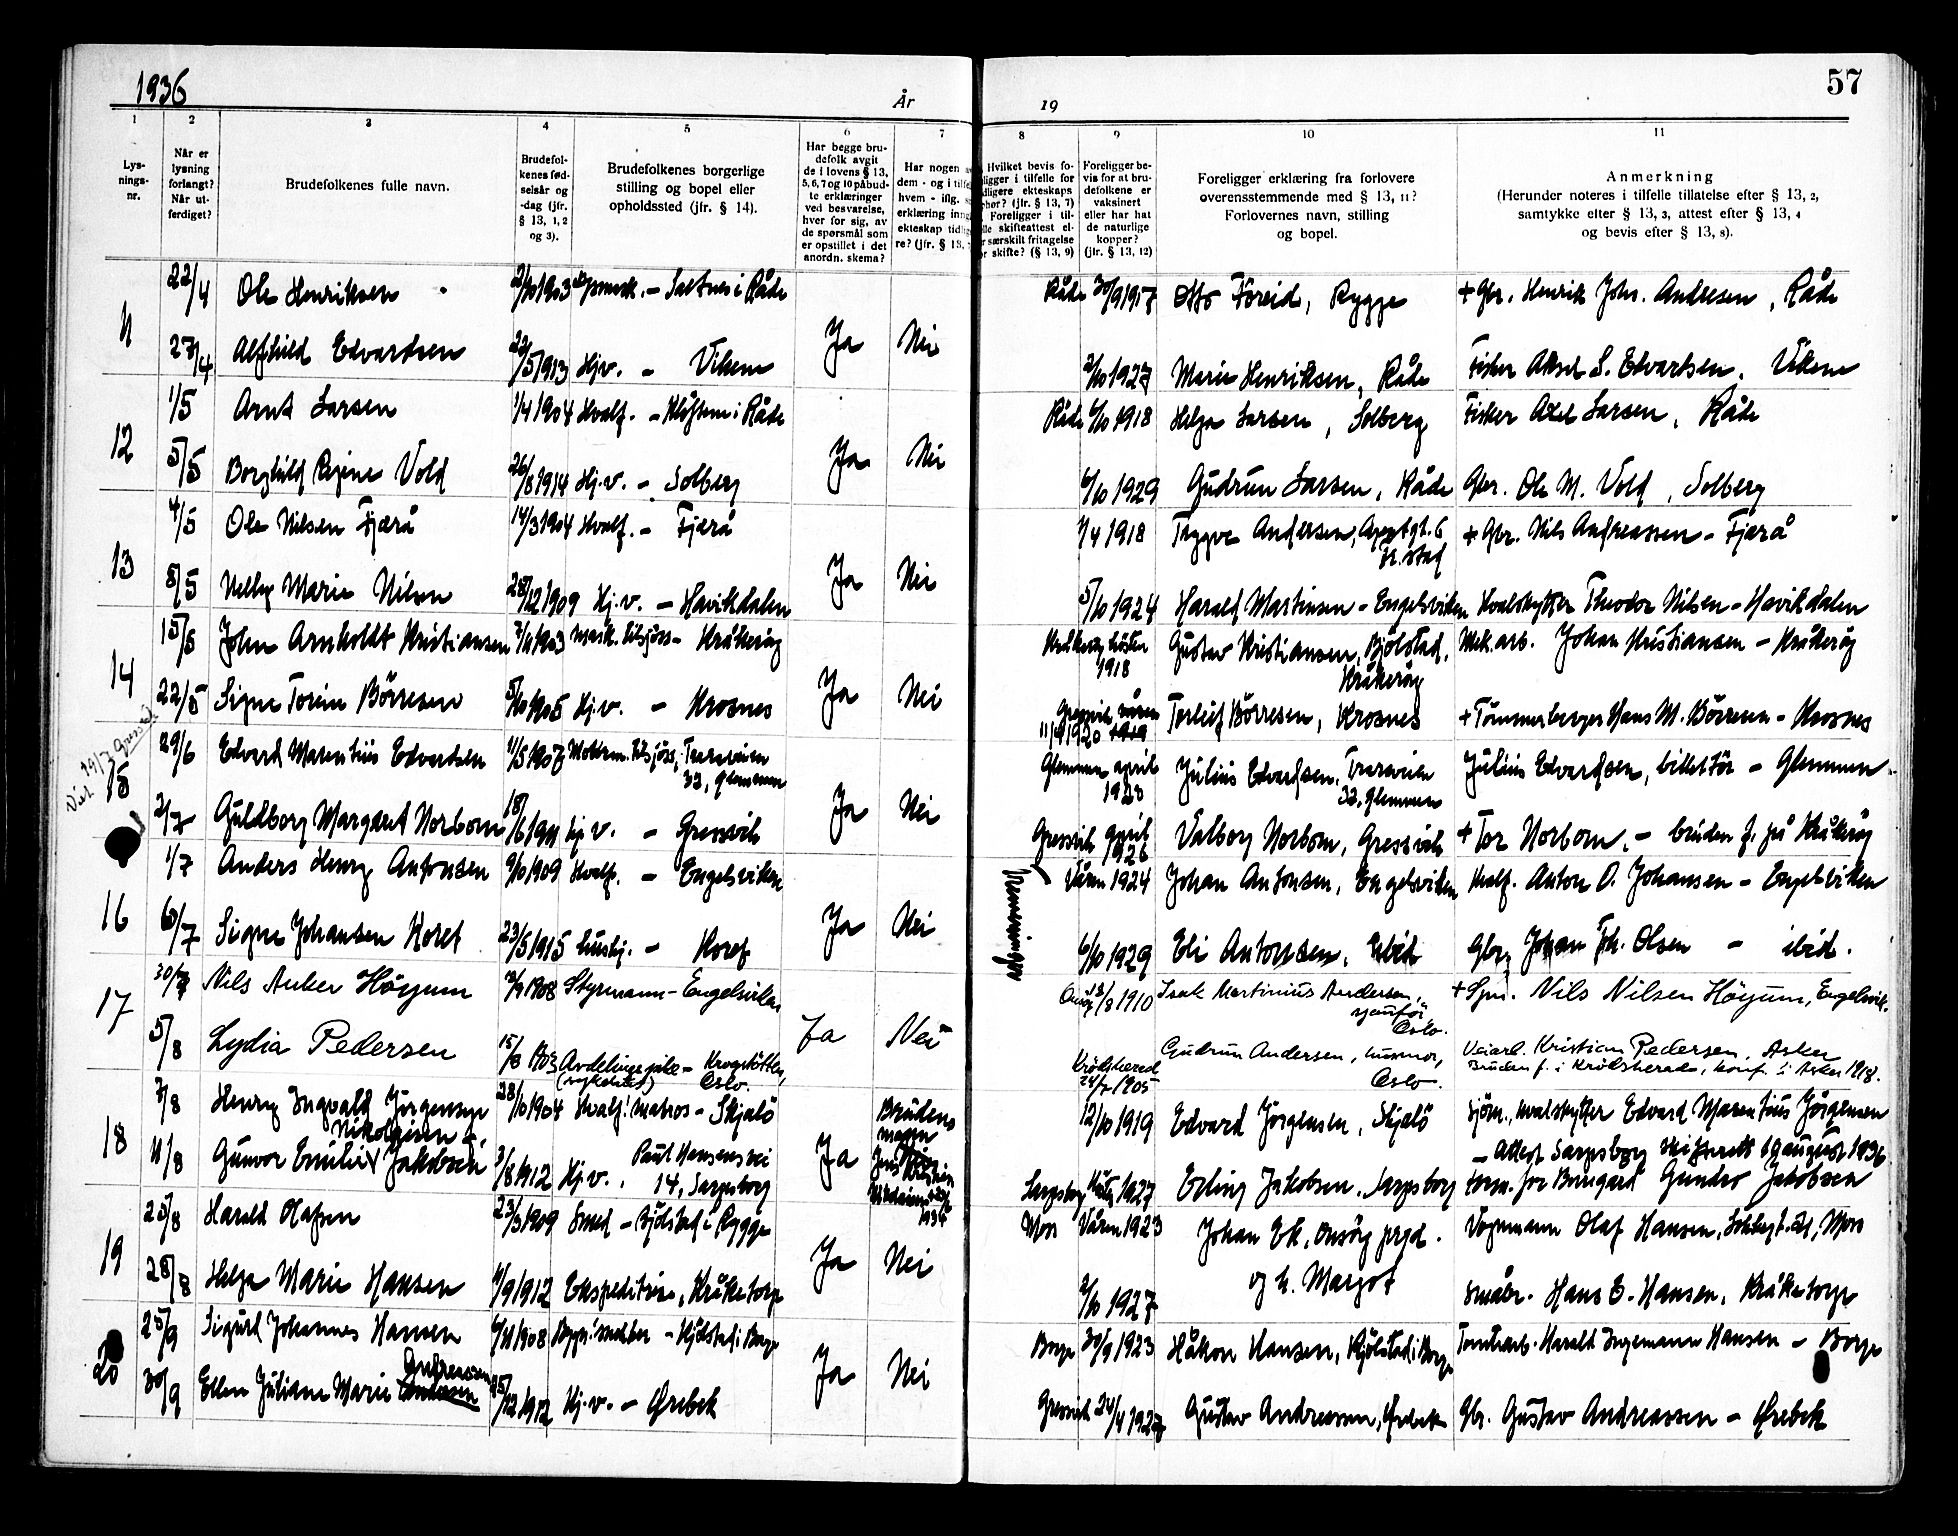 1936
År
19
57
1 2 3 4 5 6 7 8 9 10 11
Lys-
nings-
nr.
Når er
lysning
forlangt?
Når ut-
ferdiget?
Brudefolkenes fulle navn.
Brudefol-
kenes fød-
selsår og
-dag (jfr.
§ 13, 1, 2
og 3).
Brudefolkenes borgerlige
stilling og bopel eller
opholdssted (jfr. § 14).
Har begge bru-
defolk avgit
de i lovens § 13,
5, 6, 7 og 10 påbud-
te erklæringer
ved besvarelse,
hver for sig, av
de spørsmål som
er opstillet i det
anordn. skema?
Har nogen
dem - og i tilfe
hvem - iflg.
erklæring inng
ekteskap tidlig
re? (jfr. § 13,
Hvilket bevis fo-
ligger i tilfelle for
dligere ekteskaps
phør? (jfr. § 13, 7)
Foreligger i til-
lle skifteattest el-
r særskilt fritagelse
r skifte? (§ 13, 9)
Foreligger be-
vis for at bru-
defolkene er
vaksinert
eller har hat
de naturlige
kopper?
(jfr. § 13, 12)
Foreligger erklæring fra forlovere
overensstemmende med § 13, 11?
Forlovernes navn, stilling
og bopel.
Anmerkning
(Herunder noteres i tilfelle tillatelse efter § 13, 2,
samtykke efter § 13, 3, attest efter § 13, 4
og bevis efter § 13, 8).
22/4 Ole Henriksen - Saltnes i Råde Råde 30/9 1917 Otto Foreid, Rygge + Gbr. Henrik Joh. Andresen, Råde
11 27/4 Alfhild Edvardsen 22/5 1913 Hj.v. - Vikene Ja Nei 2/10 1927 Marie Henriksen, Råde Fisker Aksel S. Edvardsen, Vikene
1/5 Arnt Larsen 1/4 1904 Hvalf. - Kløften i Råde Råde 6/10 1918 Helge Larsen, Solberg Fisker Axel Larsen, Råde
12 5/5 Borghild Regine Vold 26/8 1914 Hj.v. - Solberg Ja Nei 6/10 1929 Gudrun Larsen, Råde Gbr. Ole M. Vold, Solberg
4/5 Ole Nilsen Fjærå 14/3 1904 Hvalf. - Fjærå 7/4 1918 Trygve Andersen, + Gbr. Nils Andreassen - Fjærå
13 8/5 Nelly Marie Nilsen 28/12 1909 Hj.v. - Havikdalen Ja Nei 5/10 1924 Harald Martinsen - Engelsviken Hvalskytter Theodor Nilsen - Havikdalen
15/5 John Arnholdt Kristiansen 7/11 1903 mask. tilsjøss - Kråkerøy Kråkerøy høsten
1918 Gustav Kristiansen, Bjølstad, Mek.arb. Johan Kristiansen - Kråkerøy
Kråkerøy
14 22/5 Signe Torein Børresen 5/10 1905 Hj.v. - Krosnes Ja Nei Gressvik våren
11/4 1920 1919 Torleif Børresen, Krosnes + Tømmerberger Hans M. Børresen - Krosnes
29/6 Edvard Marentius Edvardsen 11/5 1907 Motorm. tilsjøss, Traraveien
32, Glemmen Glemmen april
1923 Julius Edvardsen, Traraveien
32, Glemmen Julius Edvardsen, billettør - Glemmen
Viet 19/7 Gressvik
15 2/7 Guldborg Margaret Norbom 18/6 1911 hj.v. - Gressvik Ja Nei Gressvik april
1926 Valborg Norbom, Gressvik + Tor Norbom. - bruden f. på Kråkerøy
1/7 Anders Henry Antonsen 9/10 1909 Hvalf. - Engelsviken Våren 1924 Johan Antonsen, Engelsviken Hvalf. Anton O. Johansen - Engelsviken
Tremenninger
16 6/7 Signe Johansen Holet 23/5 1915 hushj. - Ja Nei 6/10 1929 Eli Antonsen, ibid Gbr. Johan Fr. Olsen - ibid.
30/7 Nils Anker Høyum 1908 Styrmann - Engelsviken 13/8 1910 Isak Martinius Andersen,
sjauffør,
Oslo. + Spm. Nils Nilsen Høyum, Engelsvik.
17 5/8 Lydia Pedersen 15/8 1903 Avdelingspike - Krogstøtten,
(sykehus) Oslo. Ja Nei Krødsherad
24/7 1905 Gudrun Andersen, husmor,
Oslo. Veiarb. Kristian Pedersen, Asker
Bruden f. i Krødsherad, konf. i Asker 1918.
7/8 Henry Ingvald Jørgensen 28/10 1904 Hvalf. matros - Skjælø 12/10 1919 Edvard Jørgensen, Skjælø Sjøm., hvalskytter Edvard Marentius Jørgensen
Nikolaisen f.
18 11/8 Gunvor Emilie Jakobsen 3/8 1912 Hj.v., Paul Hansens vei
14, Sarpsborg Ja Brudens
mann
1934 Sarpsborg 1927 Erling Jakobsen, Sarpsborg - Attest Sarpsborg skifterett 19 august 1936
form. for Borregard Gunder Jakobsen
25/8 Harald Olafsen 23/3 1909 Smed - Bjølstad i Rygge Moss Våren 1923 Johan Ek, Onsøy prgd. Vognmann Olaf Hansen, Moss
19 28/8 Helga Marie Hansen 11/9 1912 Ekspeditrise, Kråketorp Ja Nei 2/10 1927 og h. Margot Småbr. Hans E. Hansen, Kråketorp
25/9 Sigurd Johannes Hansen 6/11 1908 Bygn.snekker - Kjølstad i Borge Borge 30/9 1923 Håkon Hansen, Kjølstad i Borge Tomtearb. Harald Ingemann Hansen - Borge
20 30/9 Ellen Juliane Marie Andreassen 15/12 1912 Hj.v. - Ørebek Ja Nei Gressvik 24/4 1927 Gustav Andreassen, Ørebek Gbr. Gustav Andreassen - Ørebek